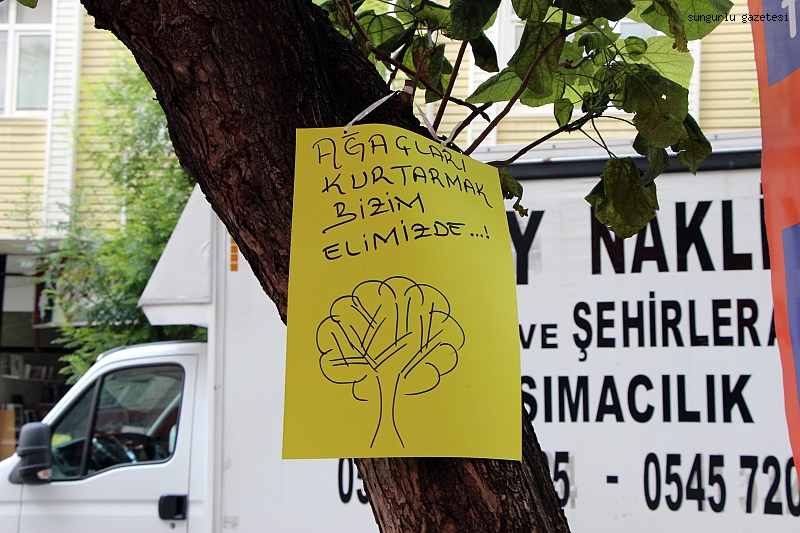 sungurlu gazetesi
AĞAÇLARI
KURTARMAK
BİZİM
ELİMİZDE...!
NAKLİ
VE ŞEHİRLERA
ŞIMACILIK
- 0545 720